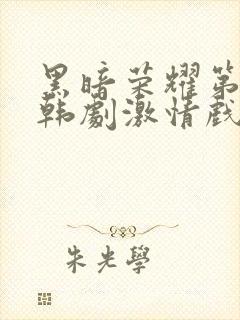 黑暗荣耀第
韩劇激情戲
朱光學